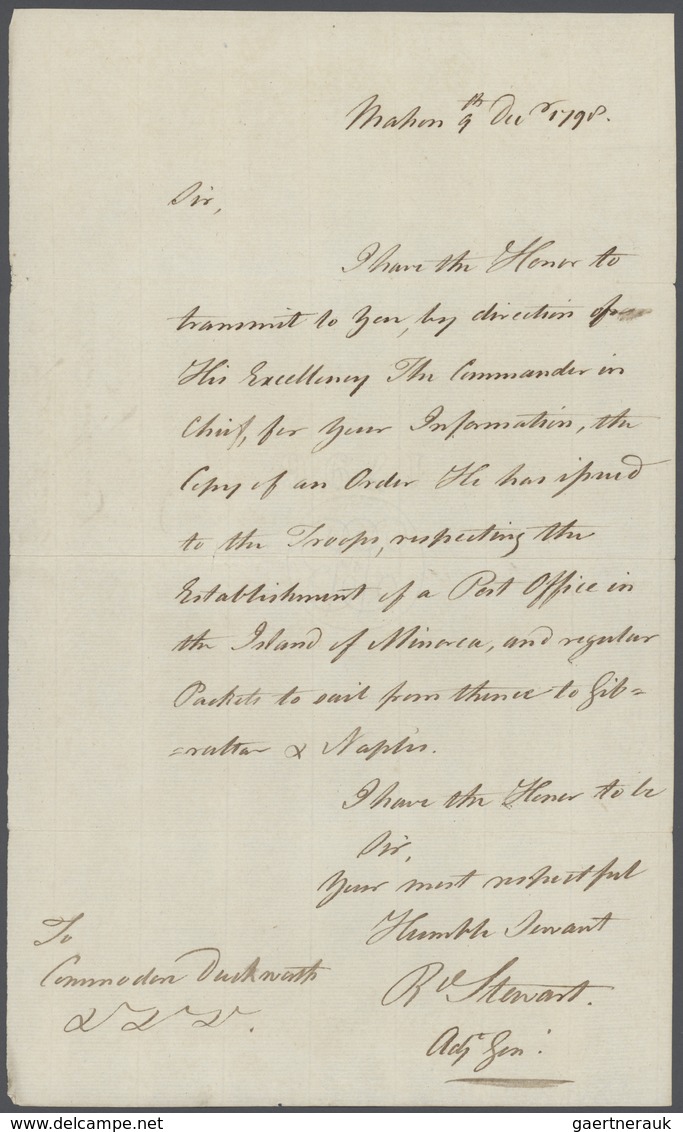 Mahon 9th Decr 1798.
Sir,
I have the Honor to
transmit to You, by direction of
His Excellency The Commander in
Chief, for Your Information, the
Copy of an Order He has issued
to the Troops, respecting the
Establishment of a Post Office in
the Island of Minorca, and regular
Packets to sail from thence to Gib=
=raltar & Naples.
I have the Honor to be
Sir,
Your most respectful
Humble Servant
Rd Stewart.
Adjt Genl.
To
Commodore Duckworth
&c &c &c.
www.delcampe.net
gaertnerauk